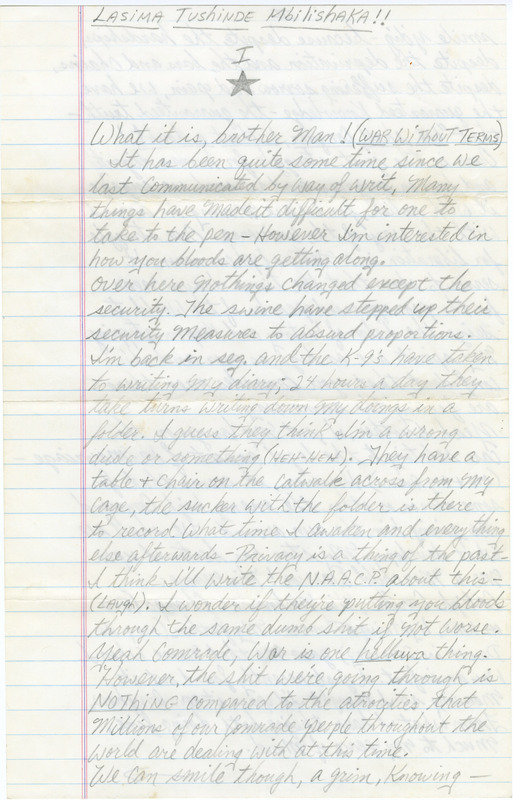 LASIMA TUSHINDE MBILISHAKA!!
I
What it is, brother Man! (WAR WITHOUT TERMS)
It has been quite some time since we
last communicated by way of writ. Many
things have made it difficult for one to
take to the pen - However I'm interested in
how you bloods are getting along.
Over here nothings changed except the
security. The swine have stepped up their
security measures to absurd proportions.
I'm back in seg. and the K-9's have taken
to writing my diary; 24 hours a day they
take turns writing down my doings in a
folder. I guess they think I'm a wrong
dude or something (HEH-HEH). They have a
table + chair on the catwalk across from my
cage, the sucker with the folder is there
to record what time I awaken and everything
else afterwards - Privacy is a thing of the past -
I think I'll write the N.A.A.C.P.s about this -
(Laugh). I wonder if they're putting you bloods
through the same dumb shit if not worse.
Yeah Comrade, War is one helluva thing.
However, the shit we're going through is
NOTHING compared to the atrocities that
Millions of our Comrade people throughout the
world are dealing with at this time.
We can smile though, a grim, knowing -